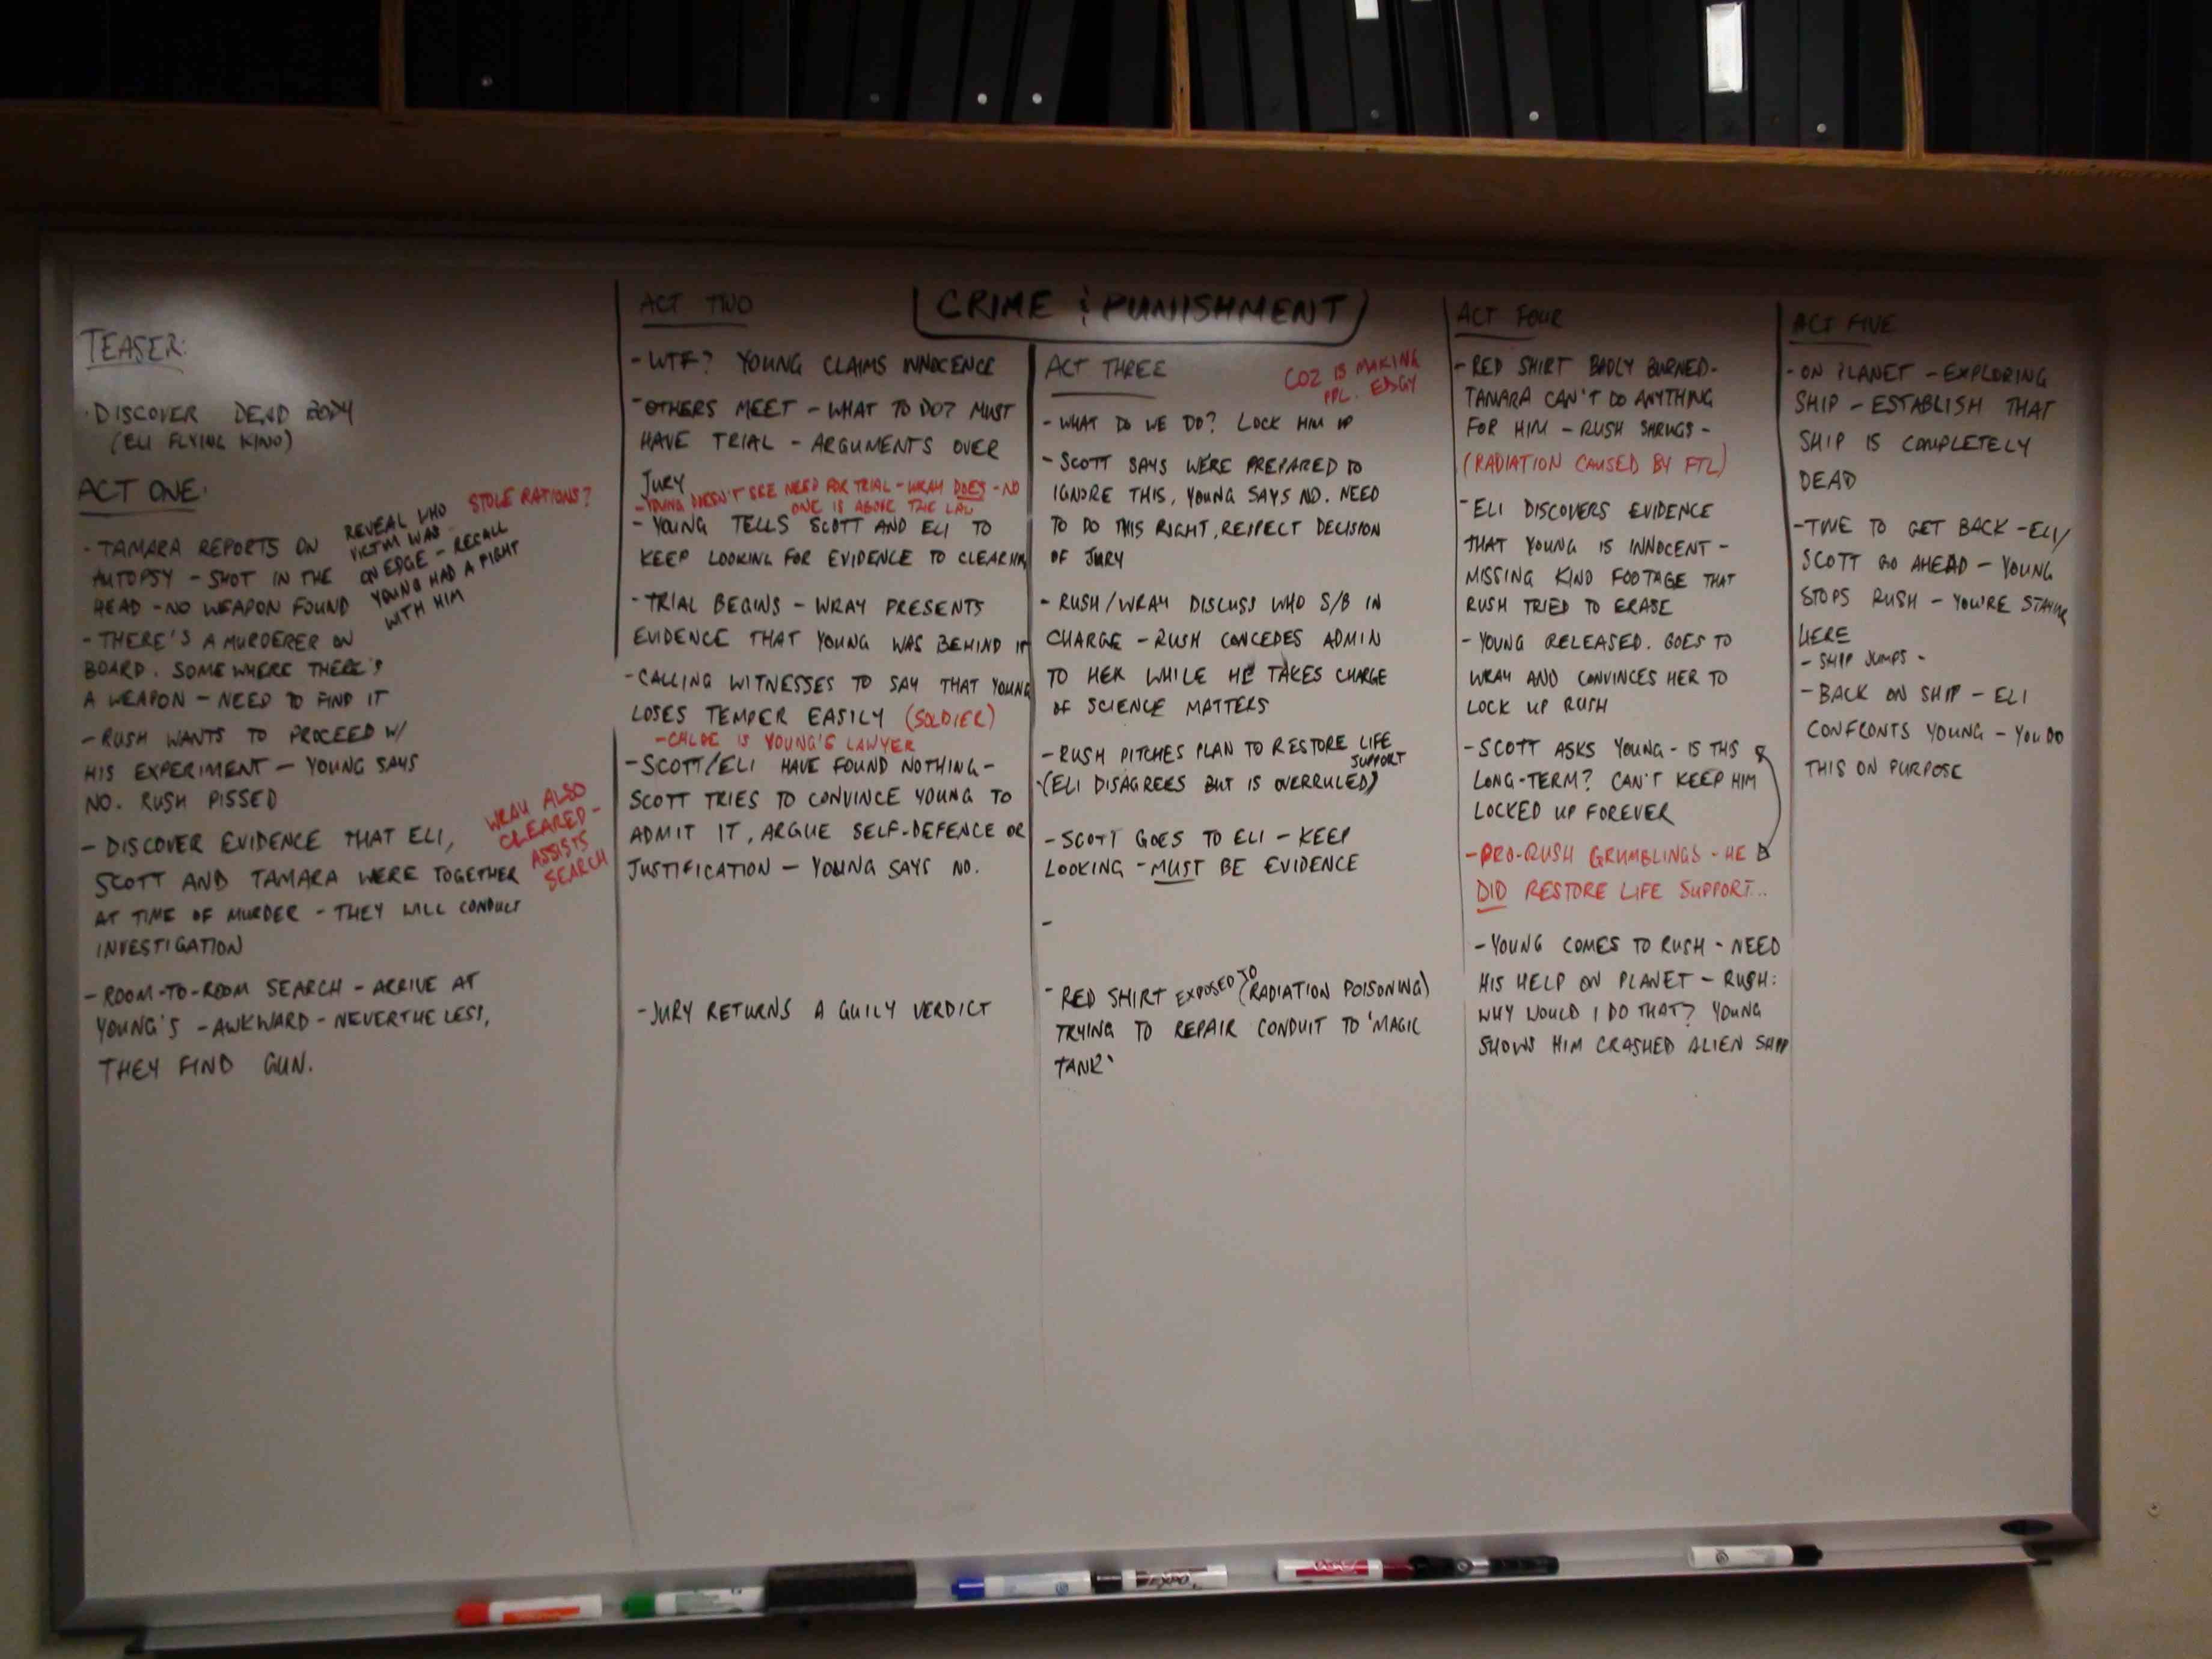 CRIME & PUNISHMENT
TEASER:
- DISCOVER DEAD BODY
(ELI FLYING KINO)
ACT ONE:
- TAMARA REPORTS ON
AUTOPSY - SHOT IN THE
HEAD - NO WEAPON FOUND
REVEAL WHO
VICTIM WAS
ON EDGE - RECALL
YOUNG HAD A FIGHT
WITH HIM
STOLE RATIONS?
- THERE'S A MURDERER ON
BOARD. SOMEWHERE THERE'S
A WEAPON - NEED TO FIND IT
- RUSH WANTS TO PROCEED W/
HIS EXPERIMENT - YOUNG SAYS
NO. RUSH PISSED
- DISCOVER EVIDENCE THAT ELI,
SCOTT AND TAMARA WERE TOGETHER
AT TIME OF MURDER - THEY WILL CONDUCT
INVESTIGATION
WRAY ALSO
CLEARED -
ASSISTS
SEARCH
- ROOM-TO-ROOM SEARCH - ARRIVE AT
YOUNG'S - AWKWARD - NEVERTHELESS,
THEY FIND GUN.
ACT TWO
- WTF? YOUNG CLAIMS INNOCENCE
- OTHERS MEET - WHAT TO DO? MUST
HAVE TRIAL - ARGUMENTS OVER
JURY
- YOUNG DOESN'T SEE NEED FOR TRIAL - WRAY DOES - NO
ONE IS ABOVE THE LAW
- YOUNG TELLS SCOTT AND ELI TO
KEEP LOOKING FOR EVIDENCE TO CLEAR HIM
- TRIAL BEGINS - WRAY PRESENTS
EVIDENCE THAT YOUNG WAS BEHIND IT
- CALLING WITNESSES TO SAY THAT YOUNG
LOSES TEMPER EASILY (SOLDIER)
- CHLOE IS YOUNG'S LAWYER
- SCOTT/ELI HAVE FOUND NOTHING -
SCOTT TRIES TO CONVINCE YOUNG TO
ADMIT IT, ARGUE SELF-DEFENCE OR
JUSTIFICATION - YOUNG SAYS NO.
- JURY RETURNS A GUILY VERDICT
ACT THREE
CO2 IS MAKING
PPL. EDGY
- WHAT DO WE DO? LOCK HIM UP
- SCOTT SAYS WE'RE PREPARED TO
IGNORE THIS, YOUNG SAYS NO. NEED
TO DO THIS RIGHT, RESPECT DECISION
OF JURY
- RUSH/WRAY DISCUSS WHO S/B IN
CHARGE - RUSH CONCEDES ADMIN
TO HER WHILE HE TAKES CHARGE
OF SCIENCE MATTERS
- RUSH PITCHES PLAN TO RESTORE LIFE
SUPPORT
(ELI DISAGREES BUT IS OVERRULED)
- SCOTT GOES TO ELI - KEEP
LOOKING - MUST BE EVIDENCE
-
- RED SHIRT EXPOSED TO (RADIATION POISONING)
TRYING TO REPAIR CONDUIT TO 'MAGIC
TANK'
ACT FOUR
- RED SHIRT BADLY BURNED -
TAMARA CAN'T DO ANYTHING
FOR HIM - RUSH SHRUGS -
(RADIATION CAUSED BY FTL)
- ELI DISCOVERS EVIDENCE
THAT YOUNG IS INNOCENT -
MISSING KINO FOOTAGE THAT
RUSH TRIED TO ERASE
- YOUNG RELEASED. GOES TO
WRAY AND CONVINCES HER TO
LOCK UP RUSH
- SCOTT ASKS YOUNG - IS THIS
LONG-TERM? CAN'T KEEP HIM
LOCKED UP FOREVER
- PRO-RUSH GRUMBLINGS - HE
DID RESTORE LIFE SUPPORT...
- YOUNG COMES TO RUSH - NEED
HIS HELP ON PLANET - RUSH:
WHY WOULD I DO THAT? YOUNG
SHOWS HIM CRASHED ALIEN SHIP
ACT FIVE
- ON PLANET - EXPLORING
SHIP - ESTABLISH THAT
SHIP IS COMPLETELY
DEAD
- TIME TO GET BACK - ELI/
SCOTT GO AHEAD - YOUNG
STOPS RUSH - YOU'RE STAYING
HERE
- SHIP JUMPS -
- BACK ON SHIP - ELI
CONFRONTS YOUNG - YOU DO
THIS ON PURPOSE
EXPO